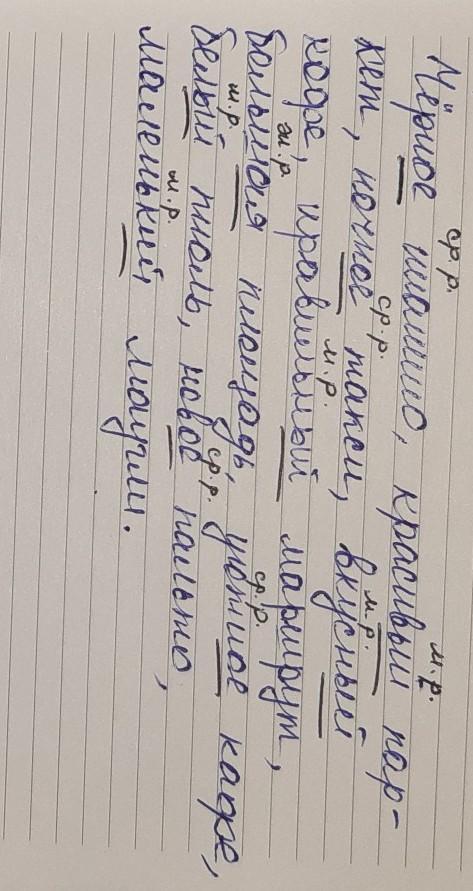 ср.р. м.р.
Чёрное пианино, красивый пар-
ср.р. м.р.
кет, ночное такси, вкусный
м.р.
кофе, правильный маршрут,
ж.р. ср.р.
большая площадь, уютное кафе,
м.р. ср.р.
белый тюль, новое пальто,
м.р.
маленький маугли.